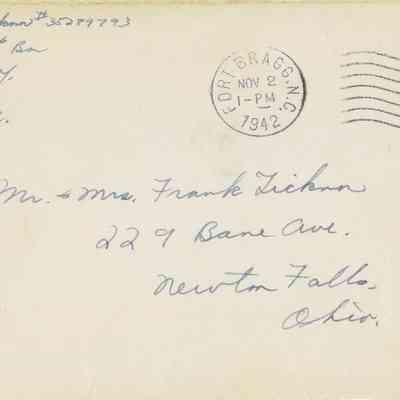 #35289793
Bn
FORT BRAGG, N.C.
NOV 2
1-PM
1942
Mr. & Mrs. Frank Ticknor
229 Bane Ave.
Newton Falls,
Ohio.